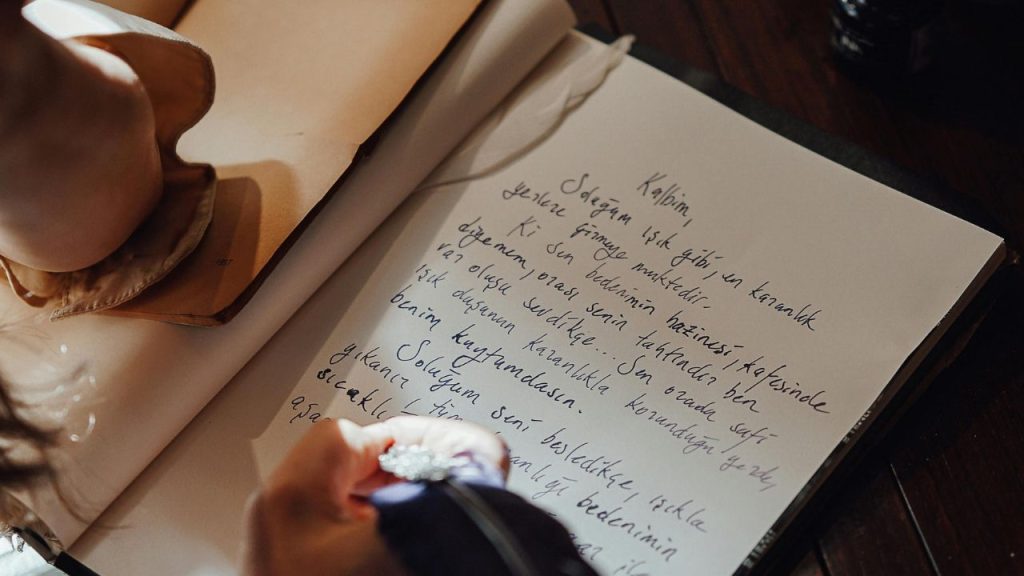 Kalbim,
Soluğum ışık gibi, en karanlık
yerlere girmeye muktedir.
Ki sen bedenimin hazinesi, kafesinde
diyemem, orası senin tahtındır ben
var oluşu sevdikçe... Sen orada safi
ışık duşunun karanlıkla korunduğu yerde,
benim kaytumdasın.
Soluğum seni besledikçe, ışıkla
yıkanır tüm bedenimin
sıcaklı
aşa